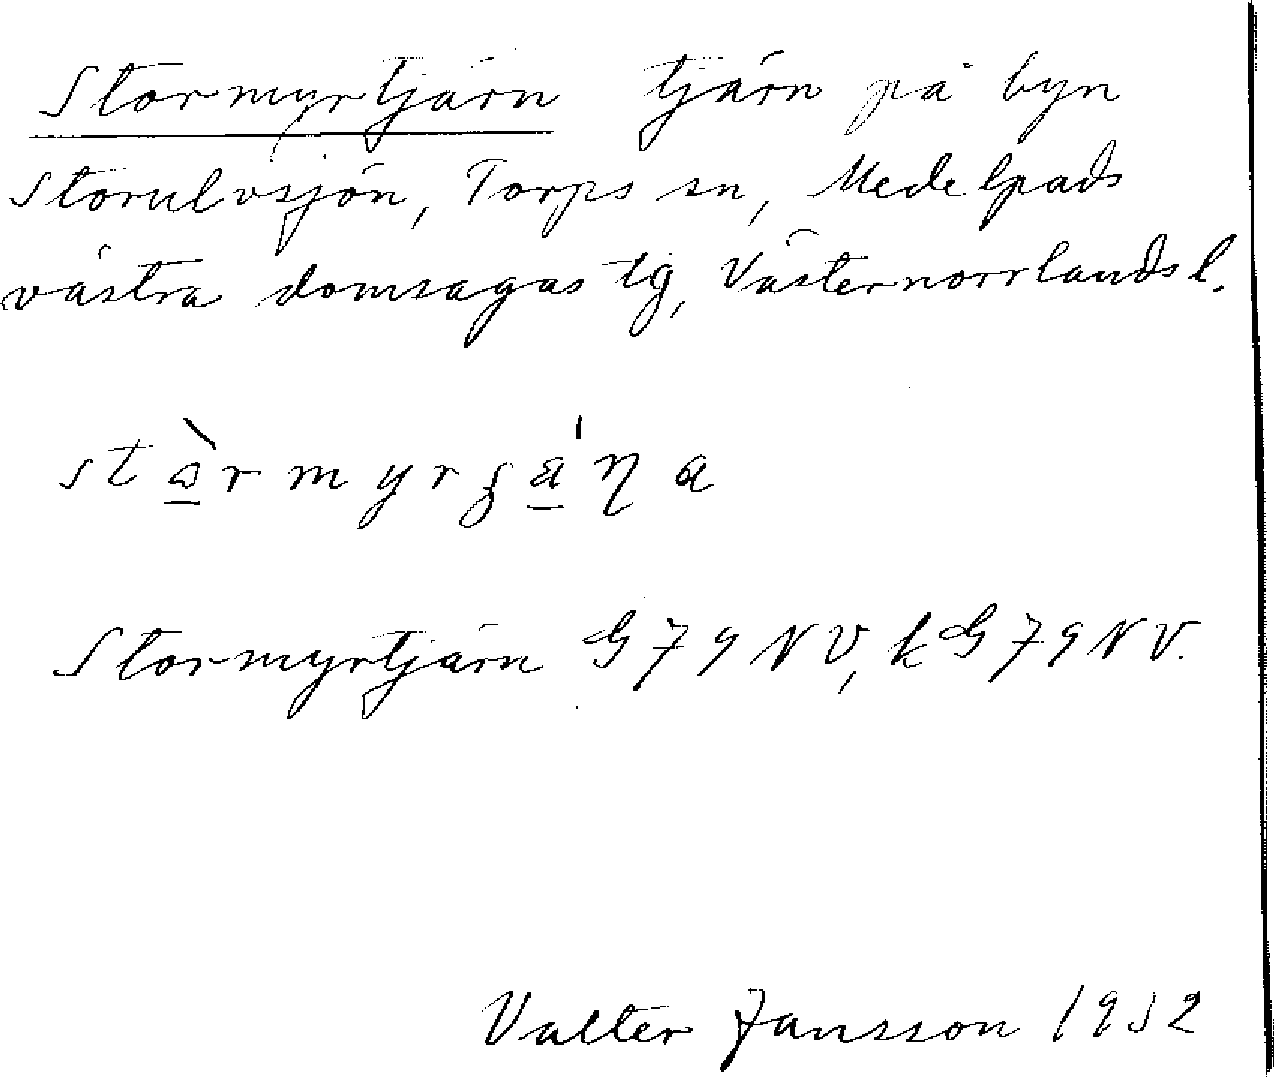 Stormyrtjärn tjärn på byn
Storulvsjön, Torps sn, Medelpads
västra domsagas tg, Västernorrlands l.
Stormyrtjärn G79NV, kG79NV.
Valter Jansson 1932